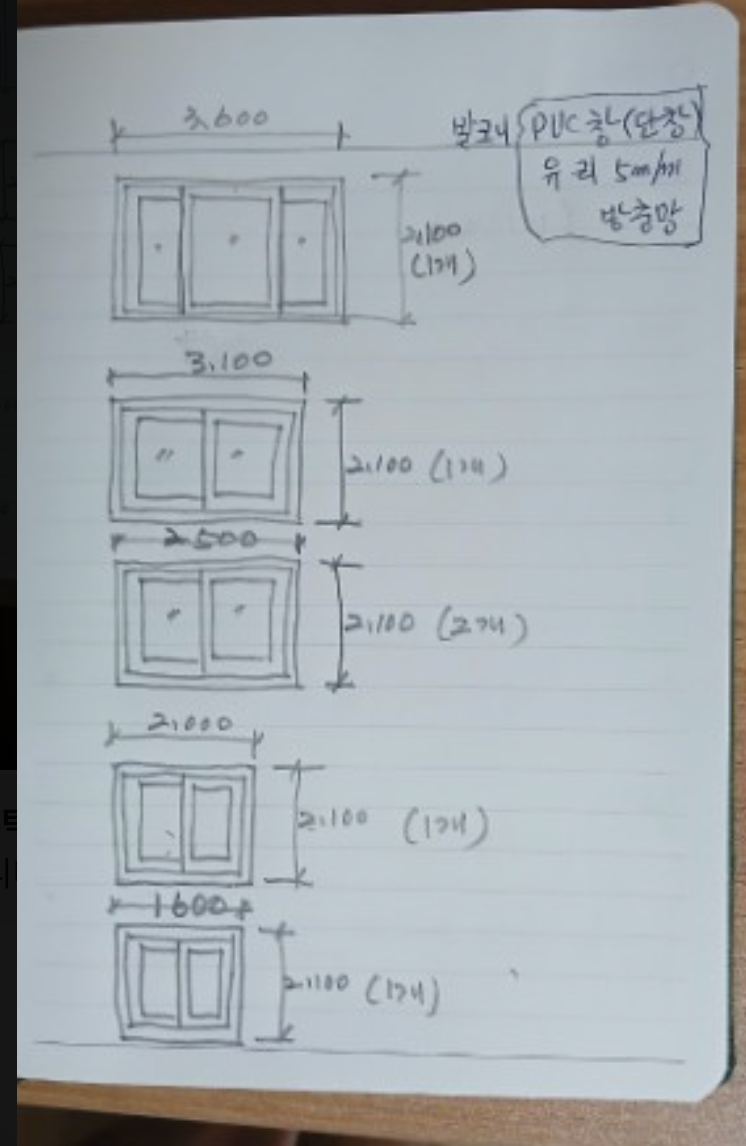 3,600
발코니 PUC 창(단창)
유리 5m/m
방충망
2,100
(1개)
3,100
2,100 (1개)
2500
2,100 (2개)
2,000
2,100 (1개)
1600
2,100 (1개)